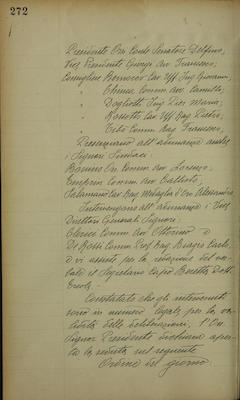 272
Presidente On. Conte Senatore Delfino,
Vice Presidente Giorgi Avv. Francesco,
Consiglieri Cav. Uff. Ing. Giovanni,
" Chiesa Comm. Avv. Camillo,
" Dogliotti Ing. Pier Maria,
" Rossetti Cav. Uff. Rag. Pietro,
" Comm. Rag. Francesco,
Presenziano all'adunanza anche
i Signori Sindaci:
On. Comm. Avv. Lorenzo,
Comm. Avv. Battista,
Salamani Cav. Rag. d'On. Alessandro
Intervengono all'adunanza i Vice
Direttori Generali Signori:
Comm. Avv. Ottorino e
De Rossi Comm. Prof. Rag. Biagio Carlo,
e vi assiste per la redazione del ver-
bale il Segretario Capo Beretta Dott.
Constatato che gli intervenuti
sono in numero legale per la va-
lidità delle deliberazioni, l'On.
Signor Presidente dichiara aper-
ta la seduta sul seguente
Ordine del giorno.